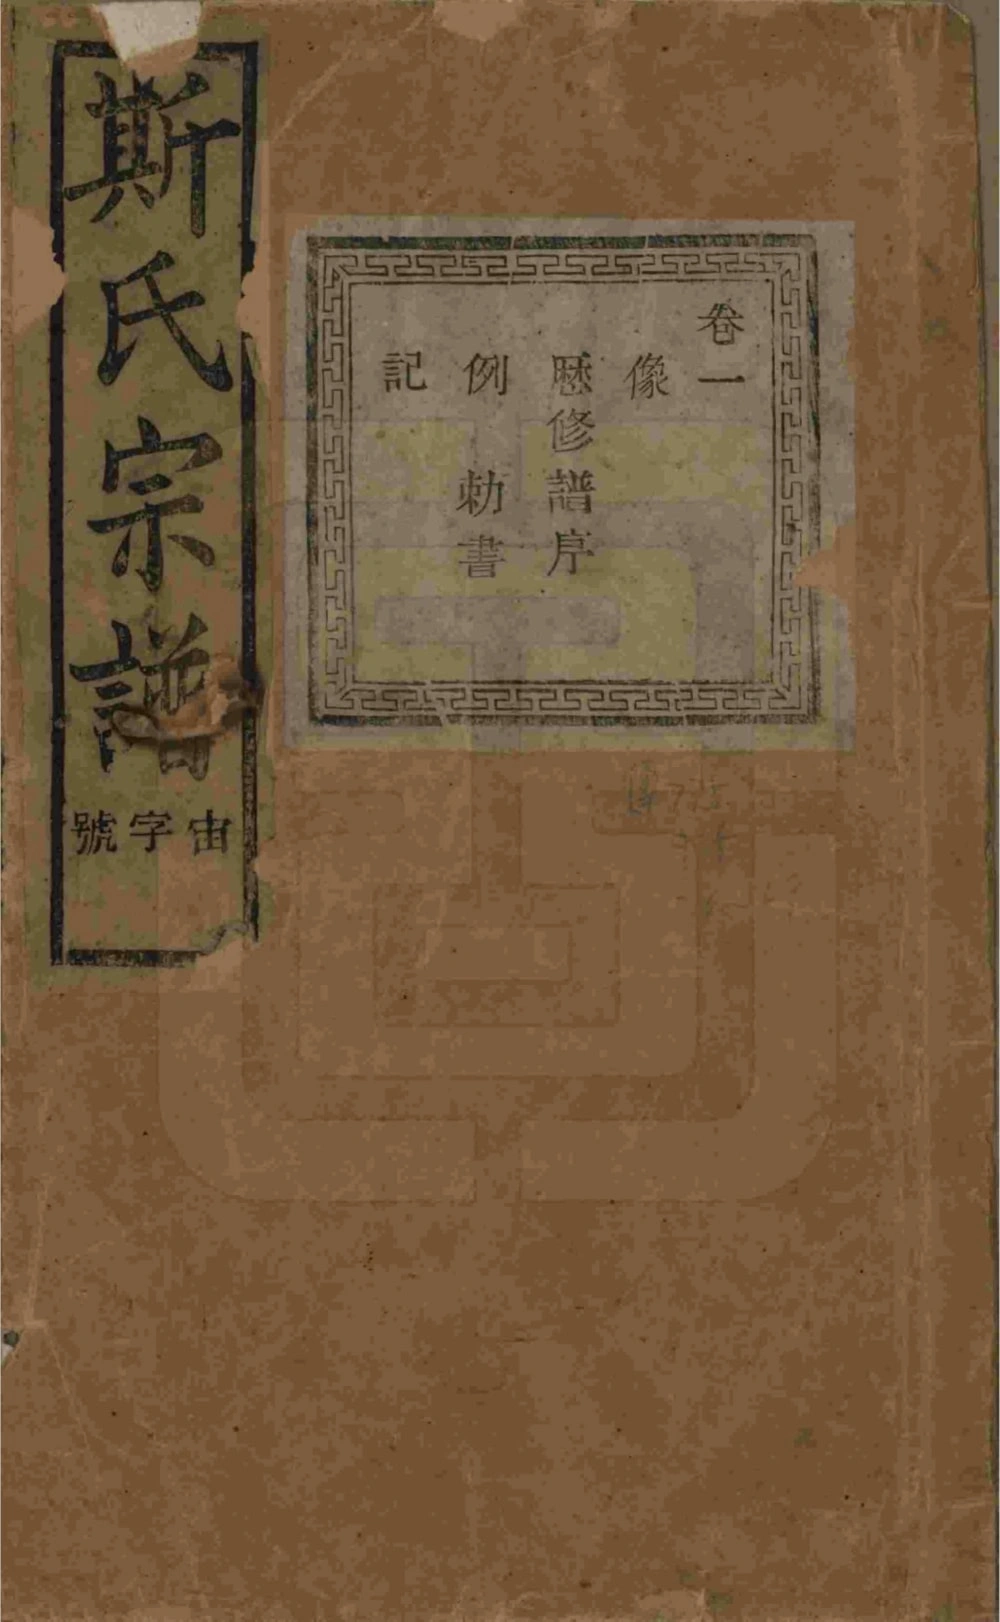 斯氏宗譜
宙字號
卷一
像
歷修譜序
例 勅書
記